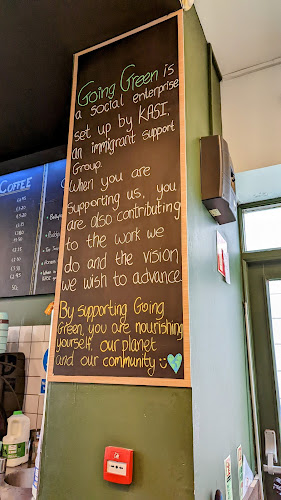 Going Green is
a social enterprise
set up by KASI,
an immigrant support
Group.
When you are
supporting us, you
are also contributing
to the work we
do and the vision
we wish to advance
By supporting Going
Green, you are nourishing
yourself, our planet
and our community
COFFEE